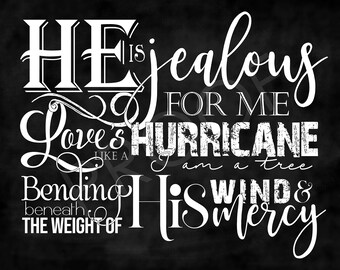 HE is jealous
FOR ME
Love's LIKE A HURRICANE
I am a tree
Bending beneath THE WEIGHT OF His WIND & mercy